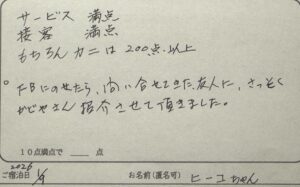 サービス 満点
接客 満点
もちろん カニは 200点以上
○ FBにのせたら、問い合せてきた友人に、さっそく
かどやさん紹介させて頂きました。
10点満点で ___ 点
2026
ご宿泊日 1/9 お名前(匿名可) ヒーコちゃん